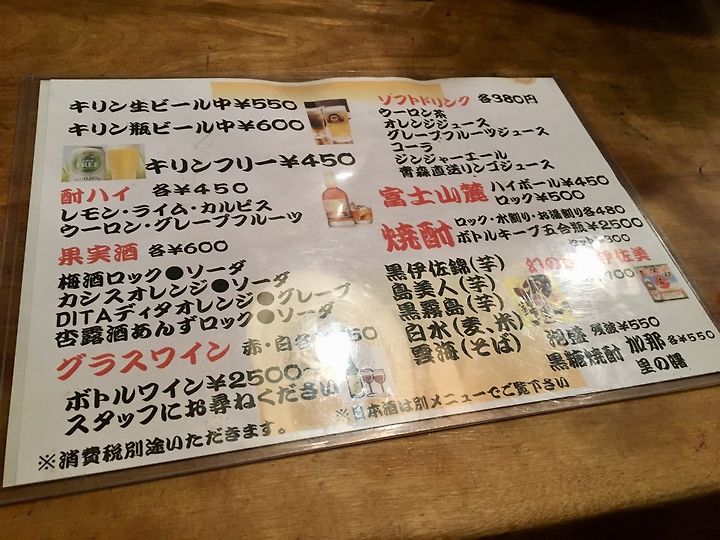 キリン生ビール中¥550
キリン瓶ビール中¥600
FREE
キリンフリー¥450
酎ハイ 各¥450
レモン・ライム・カルピス
ウーロン・グレープフルーツ
果実酒 各¥600
梅酒ロック●ソーダ
カシスオレンジ●ソーダ
DITAディタオレンジ●グレープ
杏露酒あんずロック●ソーダ
グラスワイン 赤・白各
ボトルワイン¥2500~
スタッフにお尋ねください
※消費税別途いただきます。
ソフトドリンク 各380円
ウーロン茶
オレンジジュース
グレープフルーツジュース
コーラ
ジンジャーエール
青森直送リンゴジュース
富士山麓 ハイボール¥450
ロック¥500
焼酎 ロック・水割り・お湯割り各480
ボトルキープ五合瓶¥2500
黒伊佐錦(芋)
島美人(芋)
黒霧島(芋)
白水(麦、米)
雲海(そば)
幻の 伊佐美
泡盛 残波¥550
黒糖焼酎 加那 各¥550
里の曙
※日本酒は別メニューでご覧下さい